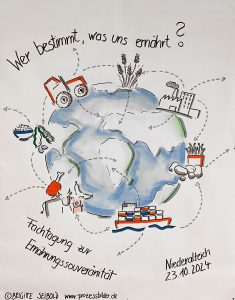 Wer bestimmt, was uns ernährt?
Fachtagung zur
Ernährungssouveränität
Niederalteich
23.10.2024
©BRIGITTE SEIBOLD www.prozessbilder.de